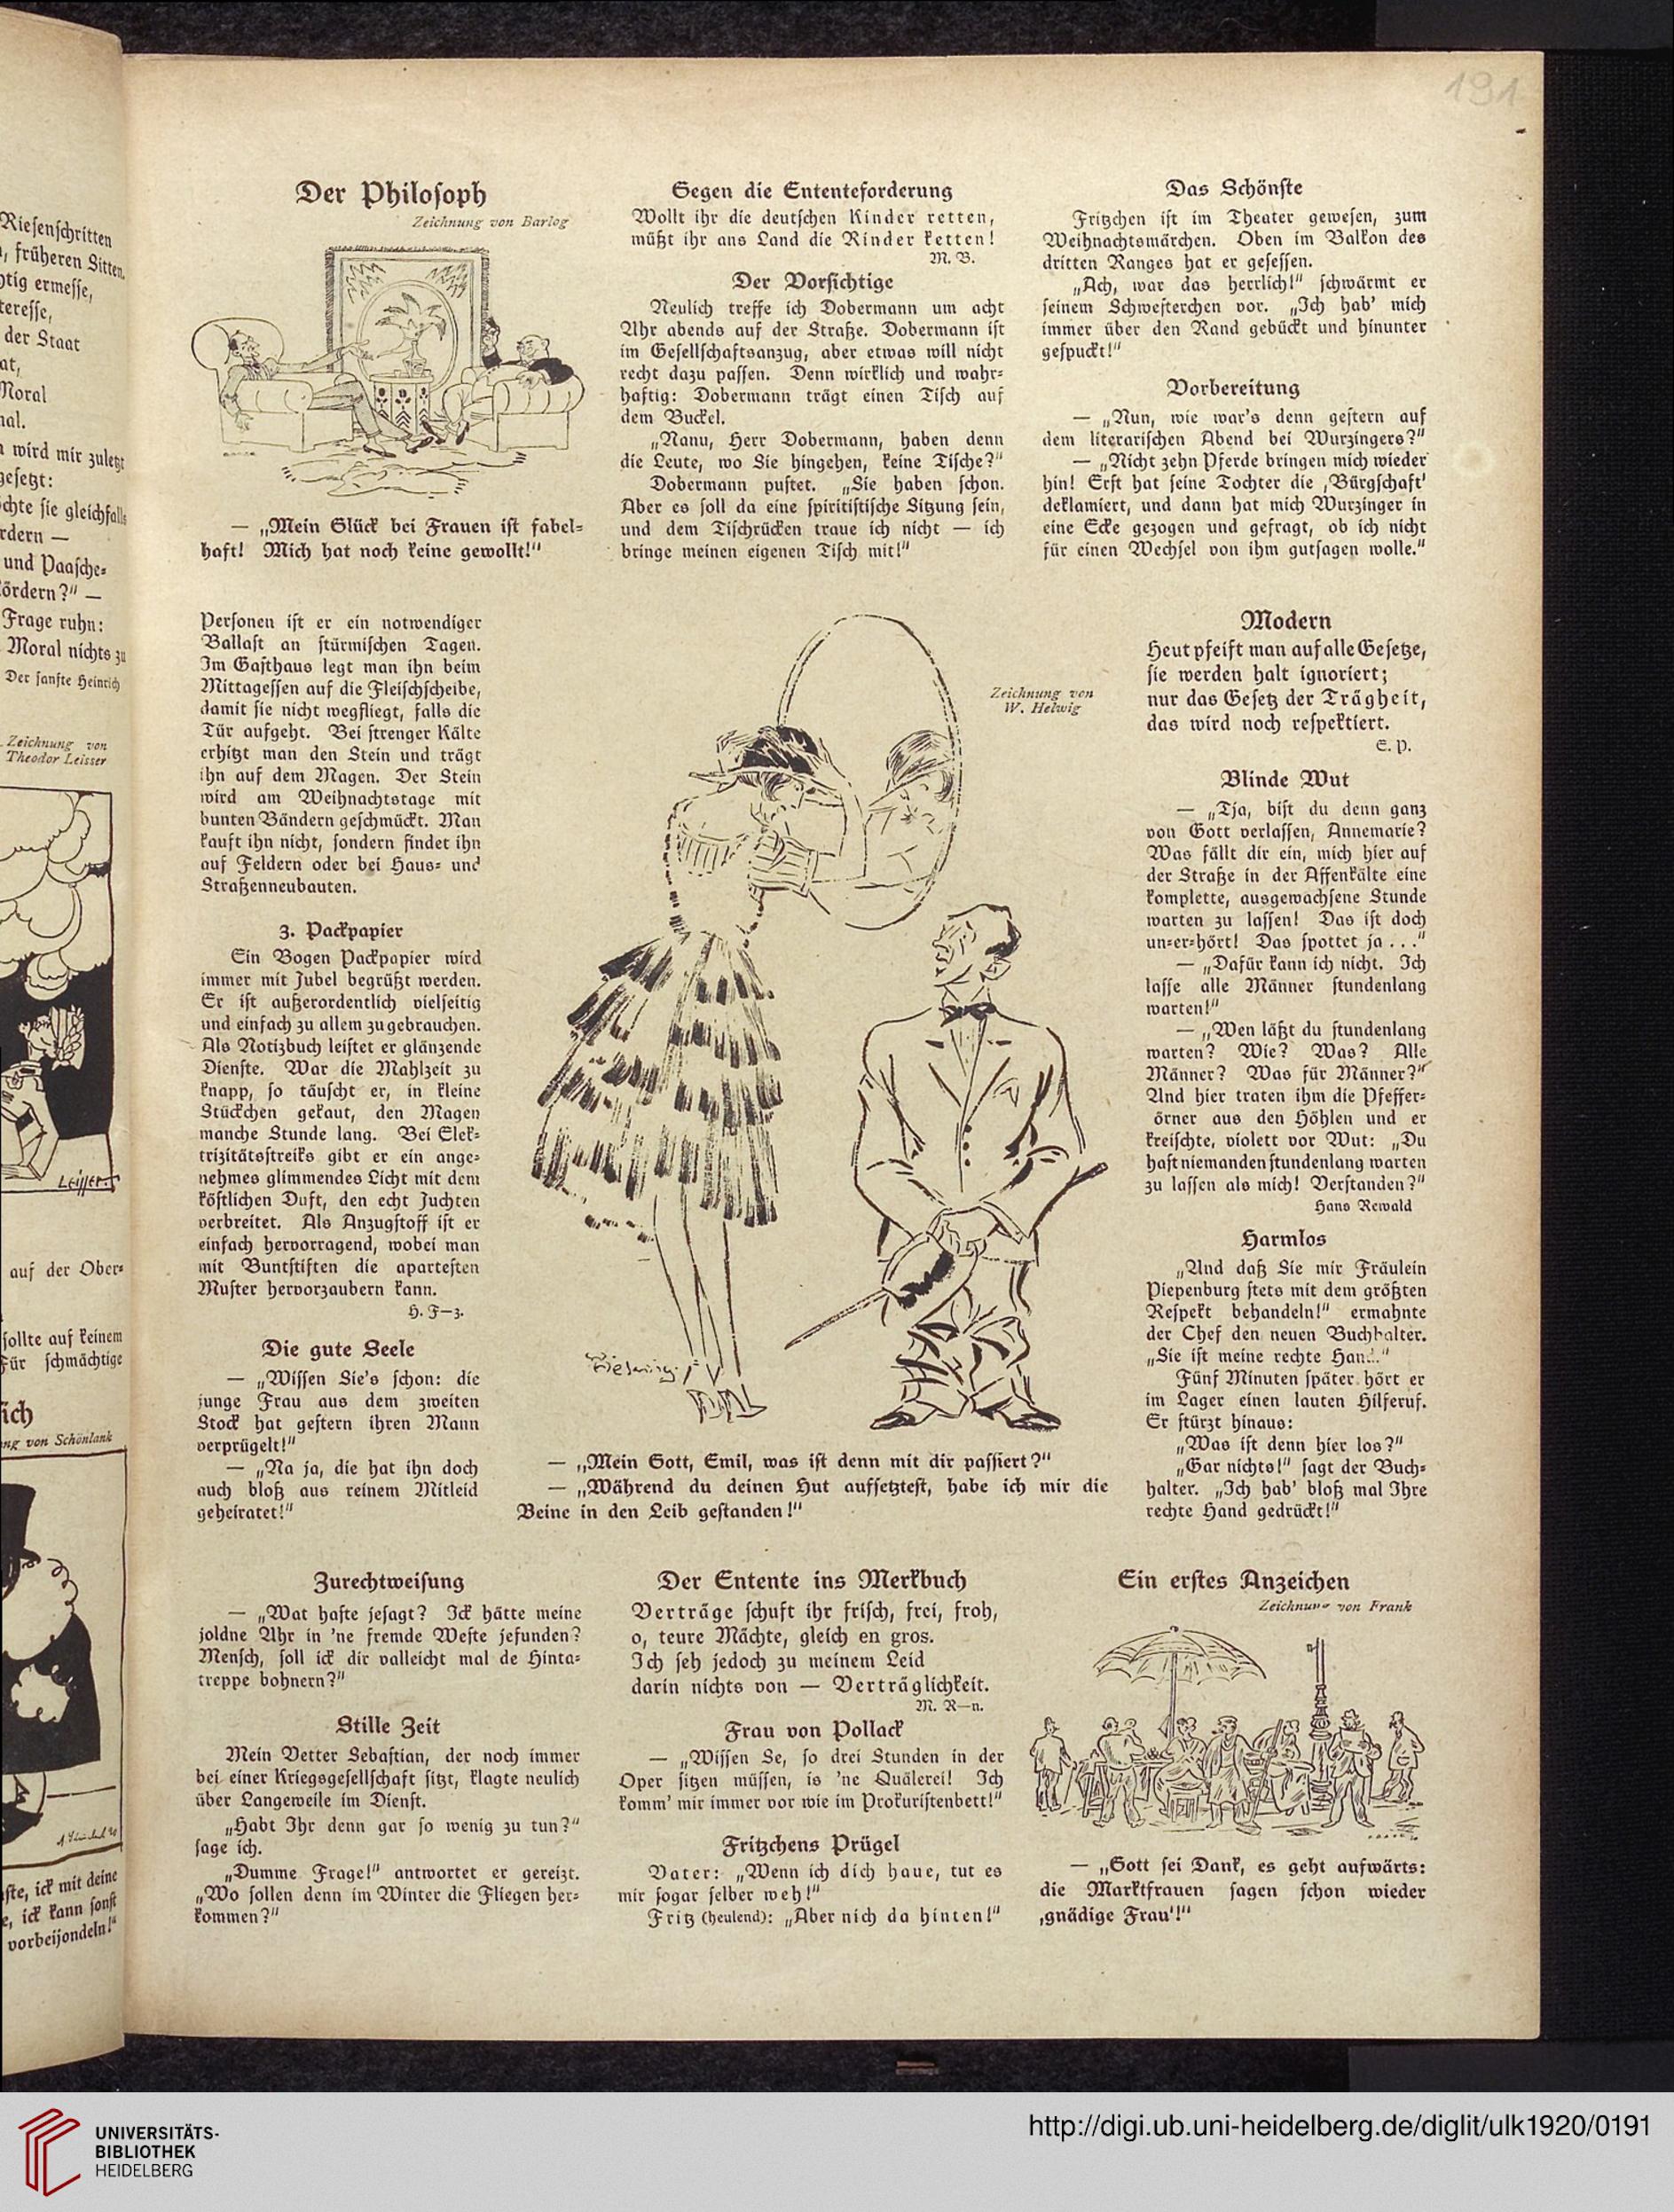 191
Riesenschritten
, früheren Sitten.
htig ermesse,
teresse,
der Staat
at,
Moral
nal.
wird mir zuletzt
gesetzt:
chte sie gleichfalls
rdern —
und Paasche-
ördern?" —
Frage ruhn:
Moral nichts zu
Der sanfte Heinrich
Zeichnung von
Theodor Leisser
Leisser
auf der Ober-
sollte auf keinem
Für schmächtige
ich
ng von Schönlank
ste, ick mit deine
e, ick kann sonst
vorbeijondeln!"
Der Philosoph
Zeichnung von Barlog
— „Mein Glück bei Frauen ist fabel-
haft! Mich hat noch keine gewollt!"
Gegen die Ententeforderung
Wollt ihr die deutschen Kinder retten,
müßt ihr ans Land die Rinder ketten!
M. B.
Der Vorsichtige
Neulich treffe ich Dobermann um acht
Uhr abends auf der Straße. Dobermann ist
im Gesellschaftsanzug, aber etwas will nicht
recht dazu passen. Denn wirklich und wahr-
haftig: Dobermann trägt einen Tisch auf
dem Buckel.
„Nanu, Herr Dobermann, haben denn
die Leute, wo Sie hingehen, keine Tische?"
Dobermann pustet. „Sie haben schon.
Aber es soll da eine spiritistische Sitzung sein,
und dem Tischrücken traue ich nicht — ich
bringe meinen eigenen Tisch mit!"
Das Schönste
Fritzchen ist im Theater gewesen, zum
Weihnachtsmärchen. Oben im Balkon des
dritten Ranges hat er gesessen.
„Ach, war das herrlich!" schwärmt er
seinem Schwesterchen vor. „Ich hab' mich
immer über den Rand gebückt und hinunter
gespuckt!"
Vorbereitung
— „Nun, wie war's denn gestern auf
dem literarischen Abend bei Wurzingers?"
— „Nicht zehn Pferde bringen mich wieder
hin! Erst hat seine Tochter die ‚Bürgschaft'
deklamiert, und dann hat mich Wurzinger in
eine Ecke gezogen und gefragt, ob ich nicht
für einen Wechsel von ihm gutsagen wolle."
Personen ist er ein notwendiger
Ballast an stürmischen Tagen.
Im Gasthaus legt man ihn beim
Mittagessen auf die Fleischscheibe,
damit sie nicht wegfliegt, falls die
Tür aufgeht. Bei strenger Kälte
erhitzt man den Stein und trägt
ihn auf dem Magen. Der Stein
wird am Weihnachtstage mit
bunten Bändern geschmückt. Man
kauft ihn nicht, sondern findet ihn
auf Feldern oder bei Haus- und
Straßenneubauten.
3. Packpapier
Ein Bogen Packpapier wird
immer mit Jubel begrüßt werden.
Er ist außerordentlich vielseitig
und einfach zu allem zu gebrauchen.
Als Notizbuch leistet er glänzende
Dienste. War die Mahlzeit zu
knapp, so täuscht er, in kleine
Stückchen gekaut, den Magen
manche Stunde lang. Bei Elek-
trizitätsstreiks gibt er ein ange-
nehmes glimmendes Licht mit dem
köstlichen Duft, den echt Juchten
verbreitet. Als Anzugstoff ist er
einfach hervorragend, wobei man
mit Buntstiften die apartesten
Muster hervorzaubern kann.
H. F—z.
Die gute Seele
— „Wissen Sie's schon: die
junge Frau aus dem zweiten
Stock hat gestern ihren Mann
verprügelt!"
— „Na ja, die hat ihn doch
auch bloß aus reinem Mitleid
geheiratet!"
Zeichnung von
W. Helwig
— „Mein Gott, Emil, was ist denn mit dir passiert?"
— „Während du deinen Hut aufsetztest, habe ich mir die
Beine in den Leib gestanden!"
Modern
Heut pfeift man auf alle Gesetze,
sie werden halt ignoriert;
nur das Gesetz der Trägheit,
das wird noch respektiert.
E. P.
Blinde Wut
— „Tja, bist du denn ganz
von Gott verlassen, Annemarie?
Was fällt dir ein, mich hier auf
der Straße in der Affenkälte eine
komplette, ausgewachsene Stunde
warten zu lassen! Das ist doch
un-er-hört! Das spottet ja . . ."
— „Dafür kann ich nicht. Ich
lasse alle Männer stundenlang
warten!"
— „Wen läßt du stundenlang
warten? Wie? Was? Alle
Männer? Was für Männer?"
Und hier traten ihm die Pfeffer-
örner aus den Höhlen und er
kreischte, violett vor Wut: „Du
hast niemanden stundenlang warten
zu lassen als mich! Verstanden?"
Hans Rewald
Harmlos
„Und daß Sie mir Fräulein
Piepenburg stets mit dem größten
Respekt behandeln!" ermahnte
der Chef den neuen Buchhalter.
„Sie ist meine rechte Hand."
Fünf Minuten später hört er
im Lager einen lauten Hilferuf.
Er stürzt hinaus:
„Was ist denn hier los?"
„Gar nichts!" sagt der Buch-
halter. „Ich hab' bloß mal Ihre
rechte Hand gedrückt!"
Zurechtweisung
— „Wat haste jesagt? Ick hätte meine
joldne Uhr in 'ne fremde Weste jefunden?
Mensch, soll ick dir valleicht mal de Hinta-
treppe bohnern?"
Stille Zeit
Mein Vetter Sebastian, der noch immer
bei einer Kriegsgesellschaft sitzt, klagte neulich
über Langeweile im Dienst.
„Habt Ihr denn gar so wenig zu tun?"
sage ich.
„Dumme Frage!" antwortet er gereizt.
„Wo sollen denn im Winter die Fliegen her-
kommen?"
Der Entente ins Merkbuch
Verträge schuft ihr frisch, frei, froh,
o, teure Mächte, gleich en gros.
Ich seh jedoch zu meinem Leid
darin nichts von — Verträglichkeit.
M. R—n.
Frau von Pollack
— „Wissen Se, so drei Stunden in der
Oper sitzen müssen, is 'ne Quälerei! Ich
komm' mir immer vor wie im Prokuristenbett!"
Fritzchens Prügel
Vater: „Wenn ich dich haue, tut es
mir sogar selber weh!"
Fritz (heulend): „Aber nich da hinten!"
Ein erstes Anzeichen
Zeichnung von Frank
— „Gott sei Dank, es geht aufwärts:
die Marktfrauen sagen schon wieder
‚gnädige Frau'!"
UNIVERSITÄTS-
BIBLIOTHEK
HEIDELBERG
http://digi.ub.uni-heidelberg.de/diglit/ulk1920/0191